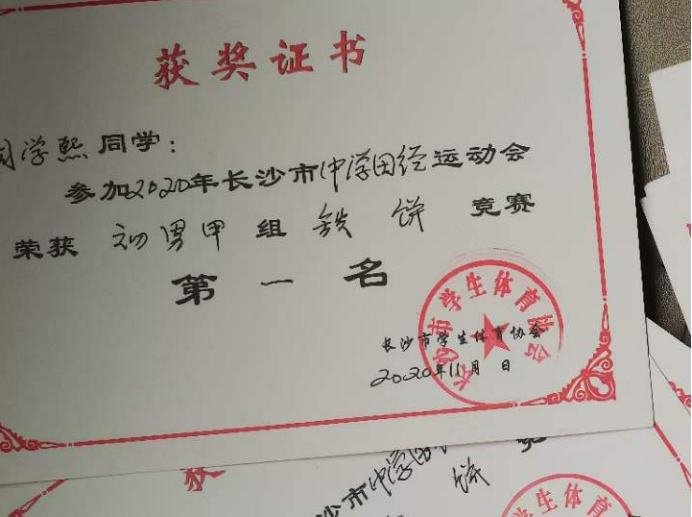 获奖证书
周学熙同学：
参加2020年长沙市中学田径运动会
荣获初男甲组铁饼竞赛
第一名
长沙市学生体育协会
长沙市学生体育协会
2020年11月 日
沙市中学田
饼
学生体育